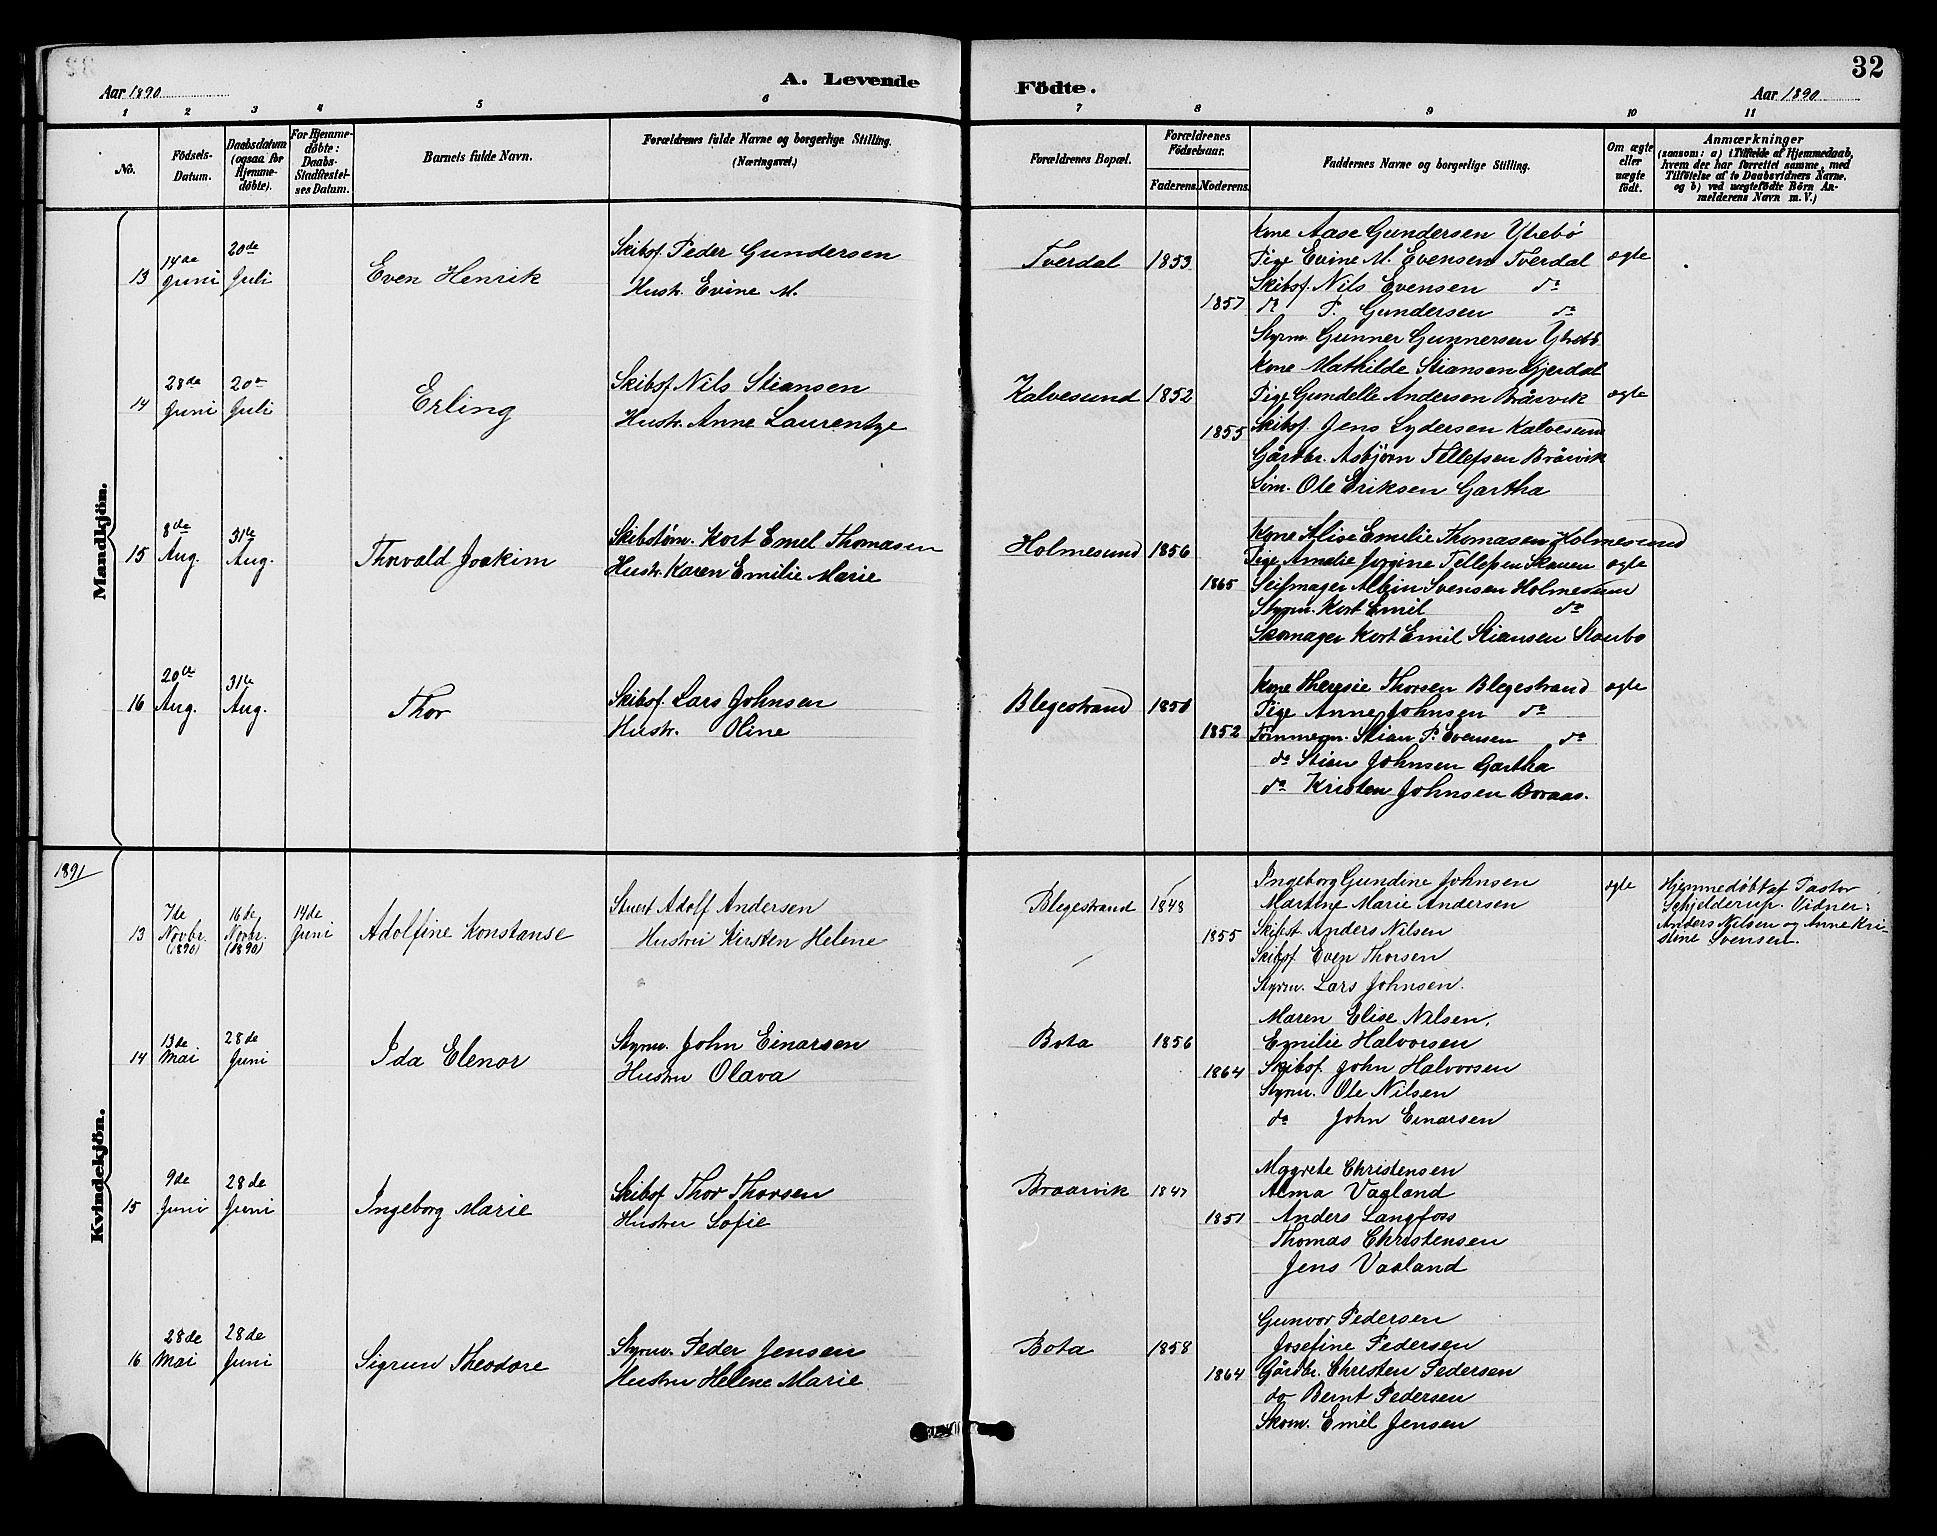 32
A. Levende Födte.
Aar 1890
Aar 1890
1 2 3 4 5 6 7 8 9 10 11
No.
Födsels-Datum.
Daabsdatum (ogsaa for Hjemme-døbte).
For Hjemme-døbte: Daabs-Stadfæstel-ses Datum.
Barnets fulde Navn.
Forældrenes fulde Navne og borgerlige Stilling.
(Næringsvei.)
Forældrenes Bopæl.
Forældrenes Födselsaar.
Faderens. Moderens.
Faddernes Navne og borgerlige Stilling.
Om ægte eller uægte födt.
Anmærkninger
(saasom: a) i Tilfælde af Hjemmedaab,
hvem der har forrettet samme, med
Tilföielse af to Daabsvidners Navne.
og b) ved uægtefödte Börn An-
melderens Navn m. V.)
Mandkjön.
13 14de Juni 20de Juli Even Henrik
Skibsf. Peder Gundersen
Hustr. Evine M.
Tverdal 1853 1857
Kone Aase Gundersen Ytrebö
Pige Evine M. Evensen Tverdal ægte
Skibsf. Nils Evensen do
do P. Gundersen do
Styrm. Gunner Gunnersen Ytrebö
14 28de Juni 20de Juli Erling
Skibsf. Nils Stiansen
Hustr. Anne Laurentze
Kalvesund 1852 1855
Kone Mathilde Stiansen Gjerdal
Pige Gundelle Andersen Bråvvik ægte
Skibsf. Jens Lydersen Kalvesund
Gårdbr. Asbjørn Tellefsen Bråvvik
Søm. Ole Eriksen Gartha
15 8de Aug. 31te Aug. Thorvald Joakim
Skibstøm. Kort Emel Thomasen
Hustr. Karen Emilie Marie
Holmesund 1856 1865
Kone Alise Emelie Thomasen Holmesund
Pige Amalie Jørgine Tellefsen Skauen ægte
Seilmager Albin Svensen Holmesun
Styrm. Kort Emil do
Skomager Kort Emil Stiansen Staubo
16 20de Aug. 31te Aug. Thor
Skibsf. Lars Johnsen
Hustr. Oline
Blegestrand 1850 1852
Kone Theresie Thorsen Blegestrand ægte
Pige Anne Johnsen do
Tømmerm. Stian P. Evensen do
do Stian Johnsen Gartha
do Kristen Johnsen Boraas.
1891
Kvindekjön.
13 7de Novbr. (1890) 16de Novbr. (1890) 14de Juni Adolfine Konstanse
Stuert Adolf Andersen
Hustru Kirsten Helene
Blegestrand 1848 1855
Ingeborg Gundine Johnsen ægte
Martine Marie Andersen
Skibst Anders Nilsen
Skibsf Even Thorsen
Styrm. Lars Johnsen.
Hjemmedøbt af Pastor
Schjelderup. Vidner:
Anders Nilsen og Anne Kri-
stine Svensen.
14 13de Mai 28de Juni Ida Elenor
Styrm. John Einarsen
Hustru Olava
Bota 1856 1864
Maren Elise Nilsen.
Emilie Halvorsen
Skibsf. John Halvorsen
Styrm. Ole Nilsen
do John Einarsen
15 9de Juni 28de Juni Ingeborg Marie
Skibsf Thor Thorsen
Hustru Sofie
Braarvik 1847 1851
Magrete Christensen
Alma Vagland
Anders Langfoss
Thomas Christensen
Jens Vagland
16 28de Mai 28de Juni Sigrun Theodore
Styrm. Peder Jensen
Hustru Helene Marie
Bota 1858 1864
Gunvor Pedersen
Josefine Pedersen
Gårdbr. Christen Pedersen
do Bernt Pedersen
Skom. Emil Jensen